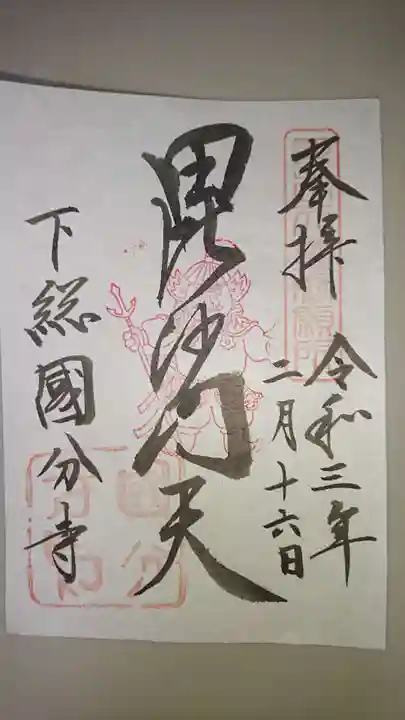 奉拝
令和三年
二月十六日
毘沙门天
下総國分寺